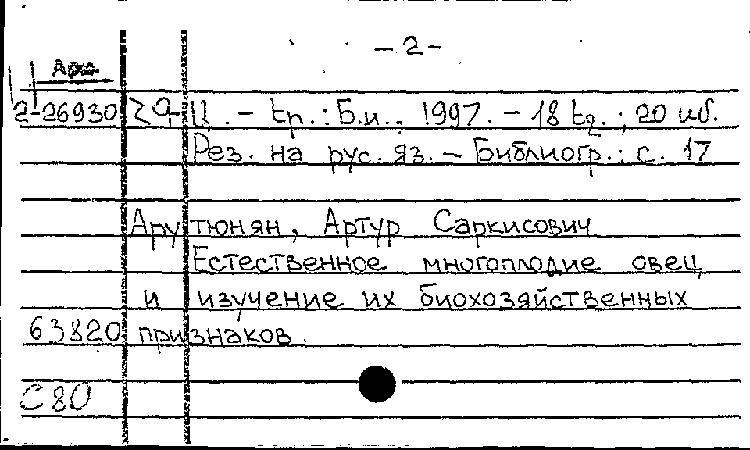 -2-
2-26930 ՀԳԱԱ. - Եր.: Б.и., 1997. - 18 էջ.; 20 սմ.
Рез. на рус. яз. - Библиогр.: с. 17
Арутюнян, Артур Саркисович
Естественное многоплодие овец
и изучение их биохозяйственных
63820 признаков.
C80